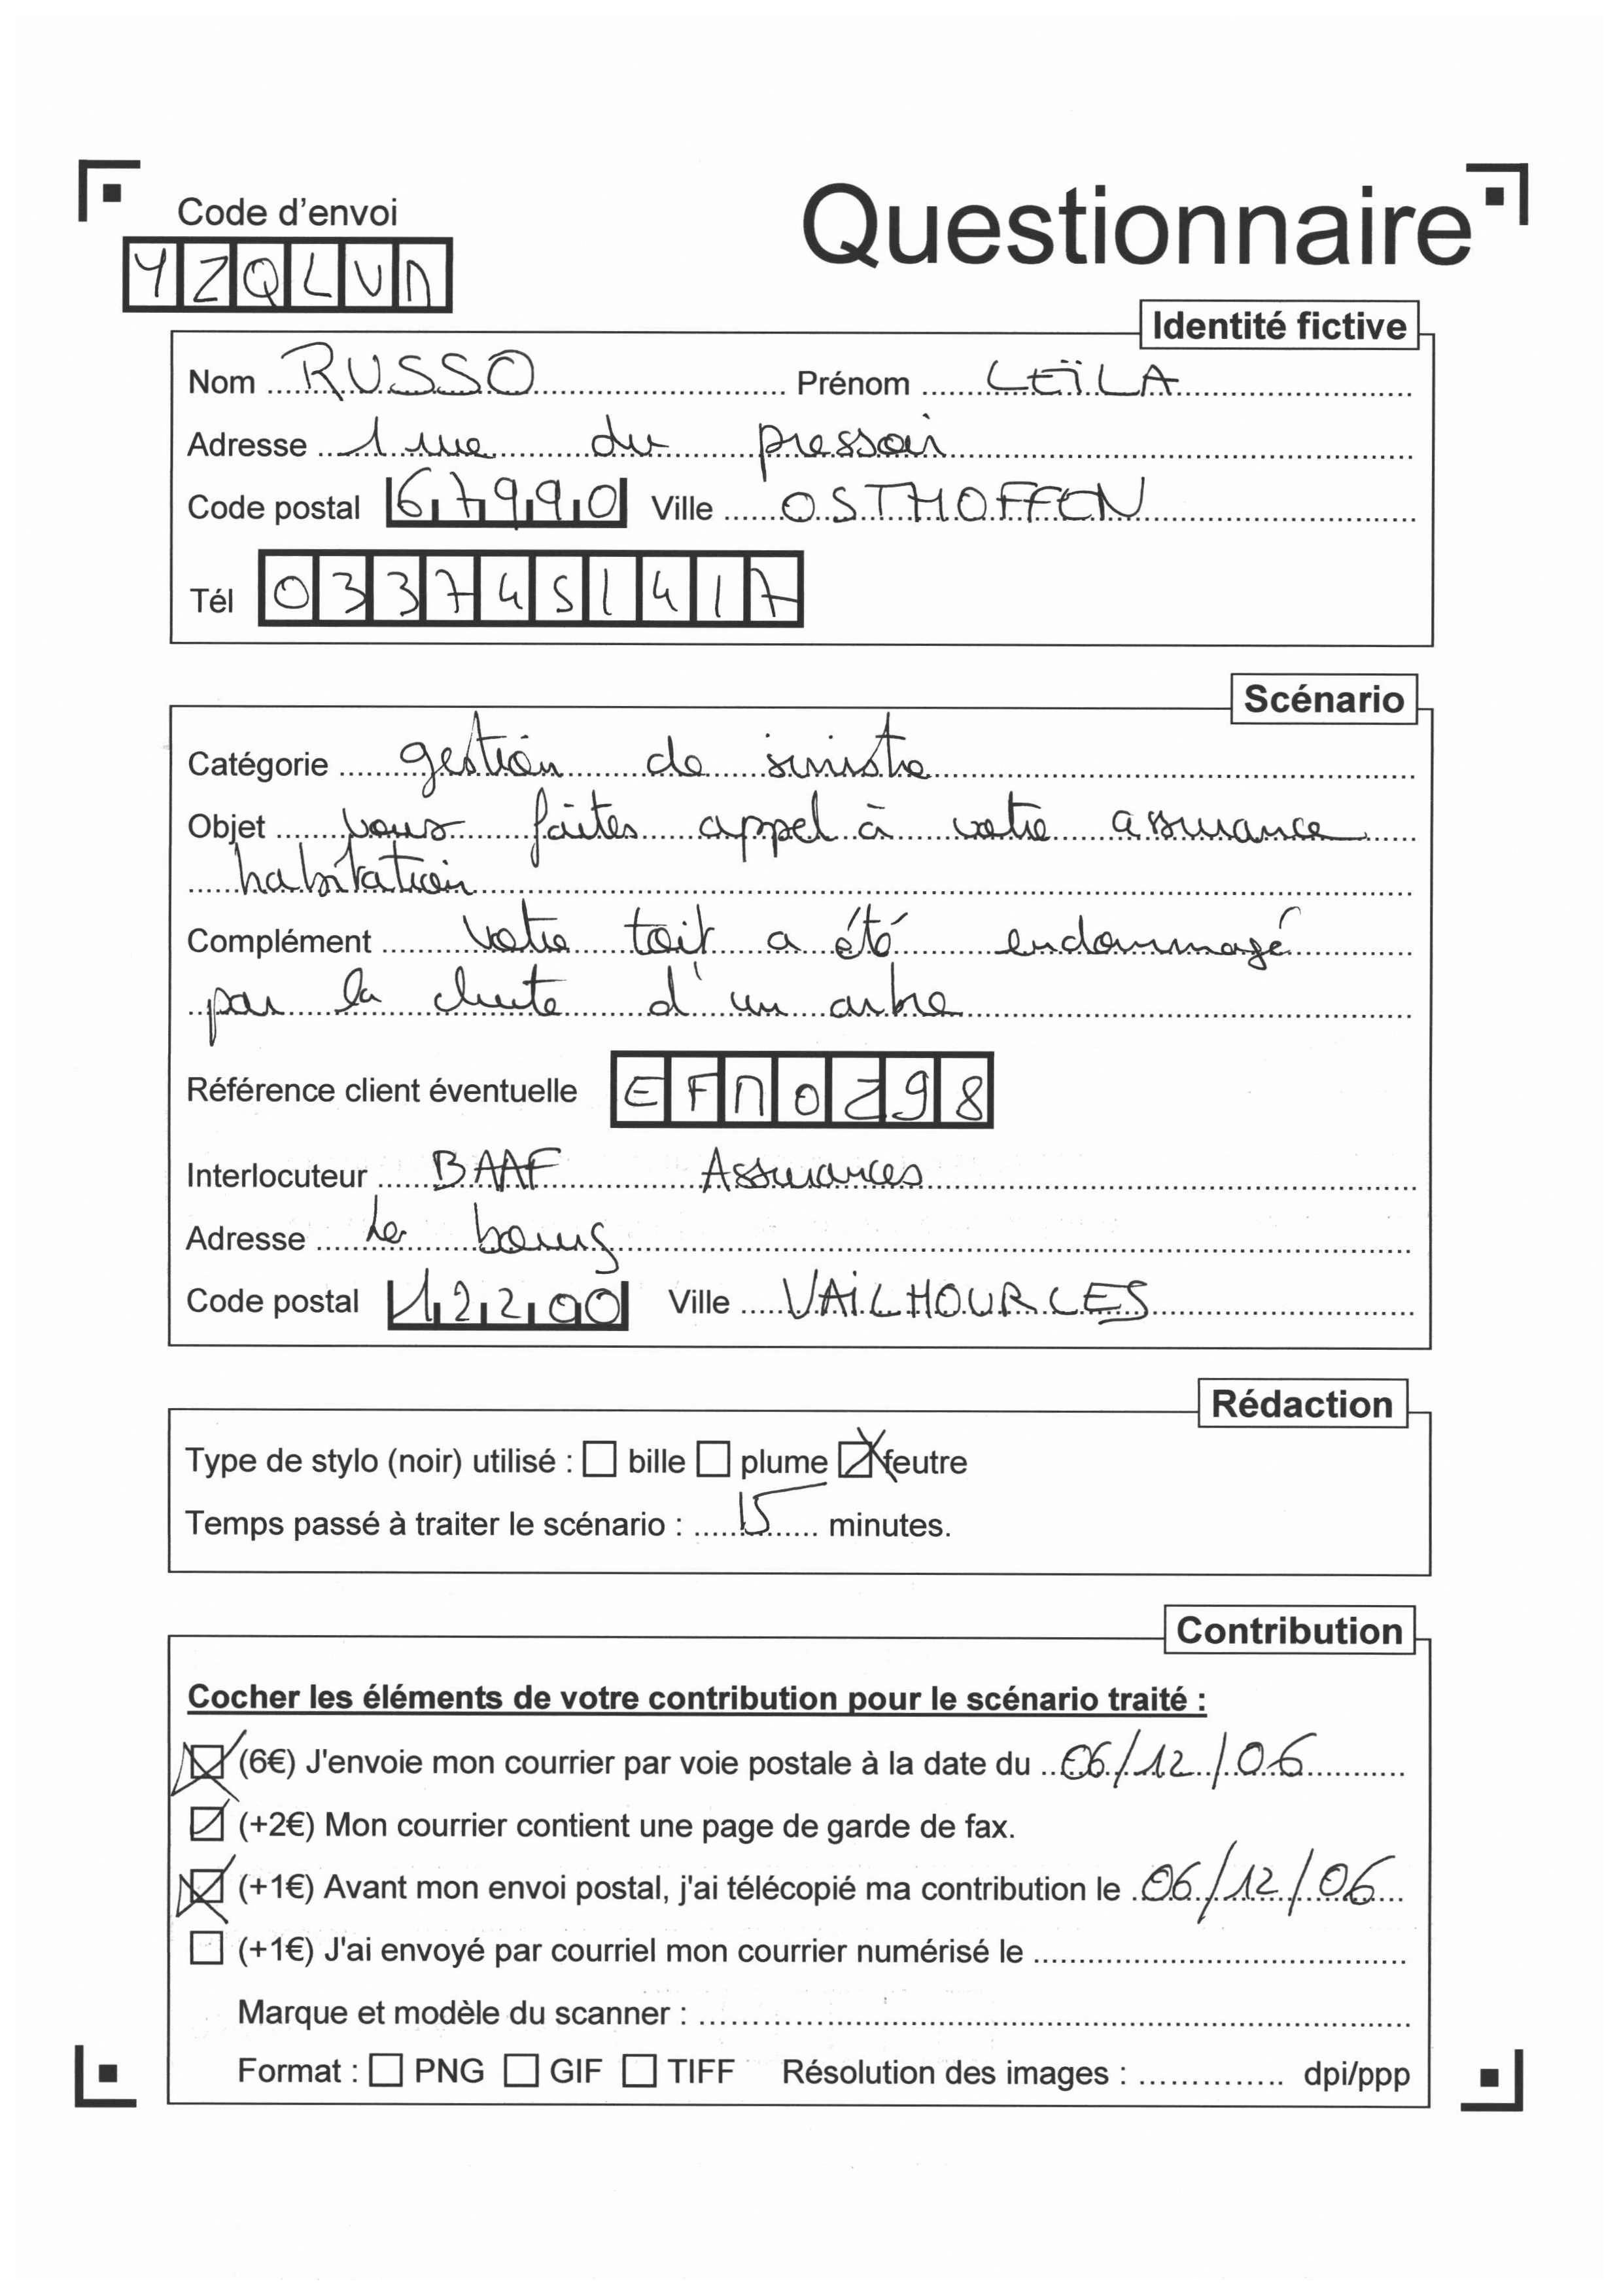 Code d'envoi
Questionnaire
YZQLVN
Identité fictive
Nom RUSSO Prénom LEÏLA
Adresse 1 rue du pressoir
Code postal 67990 Ville OSTHOFFEN
Tél 0337451417
Scénario
Catégorie gestion de sinistre
Objet vous faites appel à votre assurance
habitation
Complément votre toit a été endommagé
par la chute d'un arbre
Référence client éventuelle EFN0298
Interlocuteur BAAF Assurances
Adresse Le bourg
Code postal 12200 Ville VAILHOURLES
Rédaction
Type de stylo (noir) utilisé : bille plume feutre
Temps passé à traiter le scénario : 15 minutes.
Contribution
Cocher les éléments de votre contribution pour le scénario traité :
(6€) J'envoie mon courrier par voie postale à la date du 06/12/06
(+2€) Mon courrier contient une page de garde de fax.
(+1€) Avant mon envoi postal, j'ai télécopié ma contribution le 06/12/06
(+1€) J'ai envoyé par courriel mon courrier numérisé le
Marque et modèle du scanner :
Format : PNG GIF TIFF Résolution des images : dpi/ppp